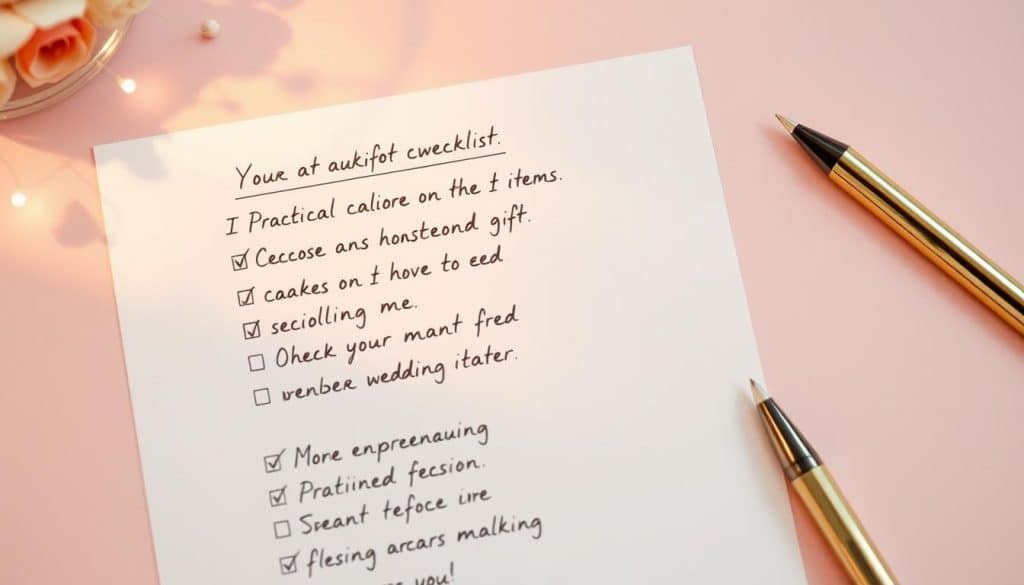 Your at aukifot cwecklist.
I Practical caliore on the t items.
Ceccose ans honsteond gift.
caakes on t hove to eed
seciolling me.
Oheck your mant fred
wenber wedding itater.
More enpreenauing
Pratiined fecsion.
Sreant tefoce ire
flesing arcars malking
you!